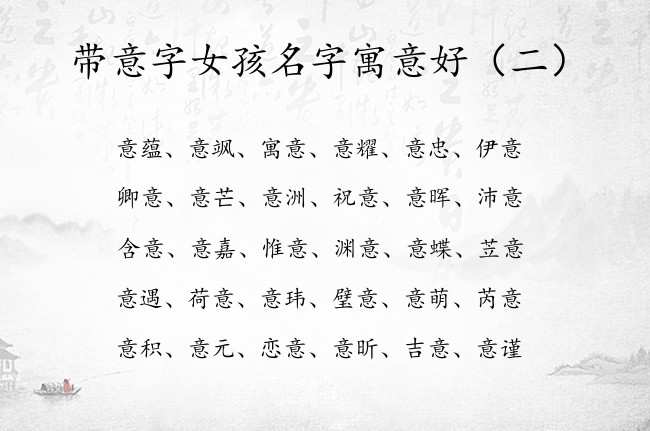 带意字女孩名字寓意好（二）
意蕴、意飒、寓意、意耀、意忠、伊意
卿意、意芒、意洲、祝意、意晖、沛意
含意、意嘉、惟意、渊意、意蝶、苙意
意遇、荷意、意玮、璧意、意萌、芮意
意积、意元、恋意、意昕、吉意、意谨